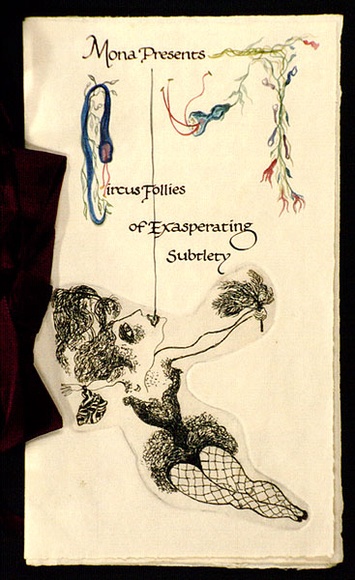 Mona Presents
Circus Follies
of Exasperating
Subtlety